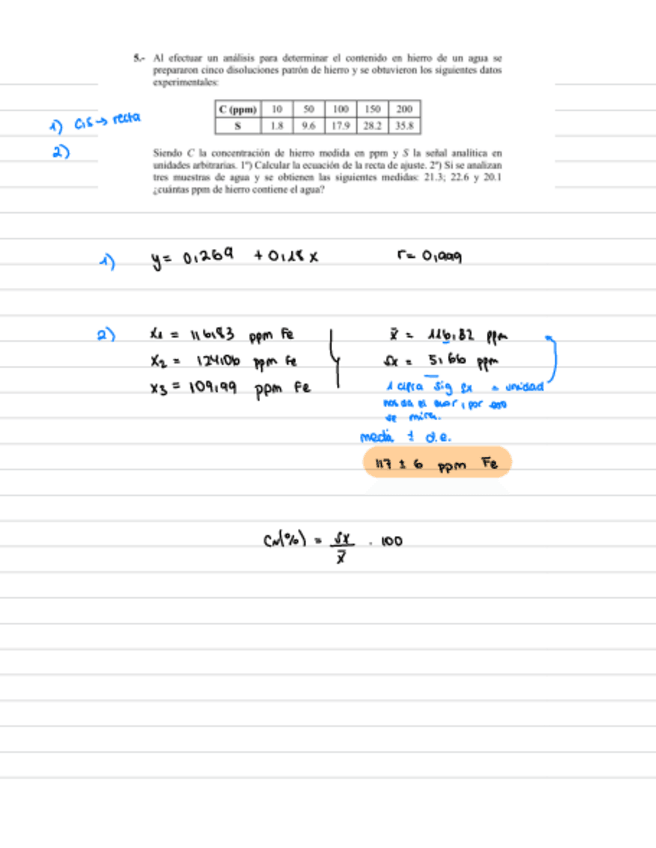 5.- Al efectuar un análisis para determinar el contenido en hierro de un agua se
prepararon cinco disoluciones patrón de hierro y se obtuvieron los siguientes datos
experimentales:
C (ppm) 10 50 100 150 200
S 1.8 9.6 17.9 28.2 35.8
1) C;S → recta
2)
Siendo C la concentración de hierro medida en ppm y S la señal analítica en
unidades arbitrarias. 1º) Calcular la ecuación de la recta de ajuste. 2º) Si se analizan
tres muestras de agua y se obtienen las siguientes medidas: 21.3; 22.6 y 20.1
¿cuántas ppm de hierro contiene el agua?
1) y = 0,269 + 0,18 x r = 0,999
2) x1 = 116,83 ppm Fe x̄ = 116,82 ppm
x2 = 124,06 ppm Fe sx = 5,66 ppm
x3 = 109,99 ppm Fe
1 cifra sig sx = unidad
nos da el error, por eso
se mira.
media ± d.e.
117 ± 6 ppm Fe
CV(%) = sx / x̄ · 100